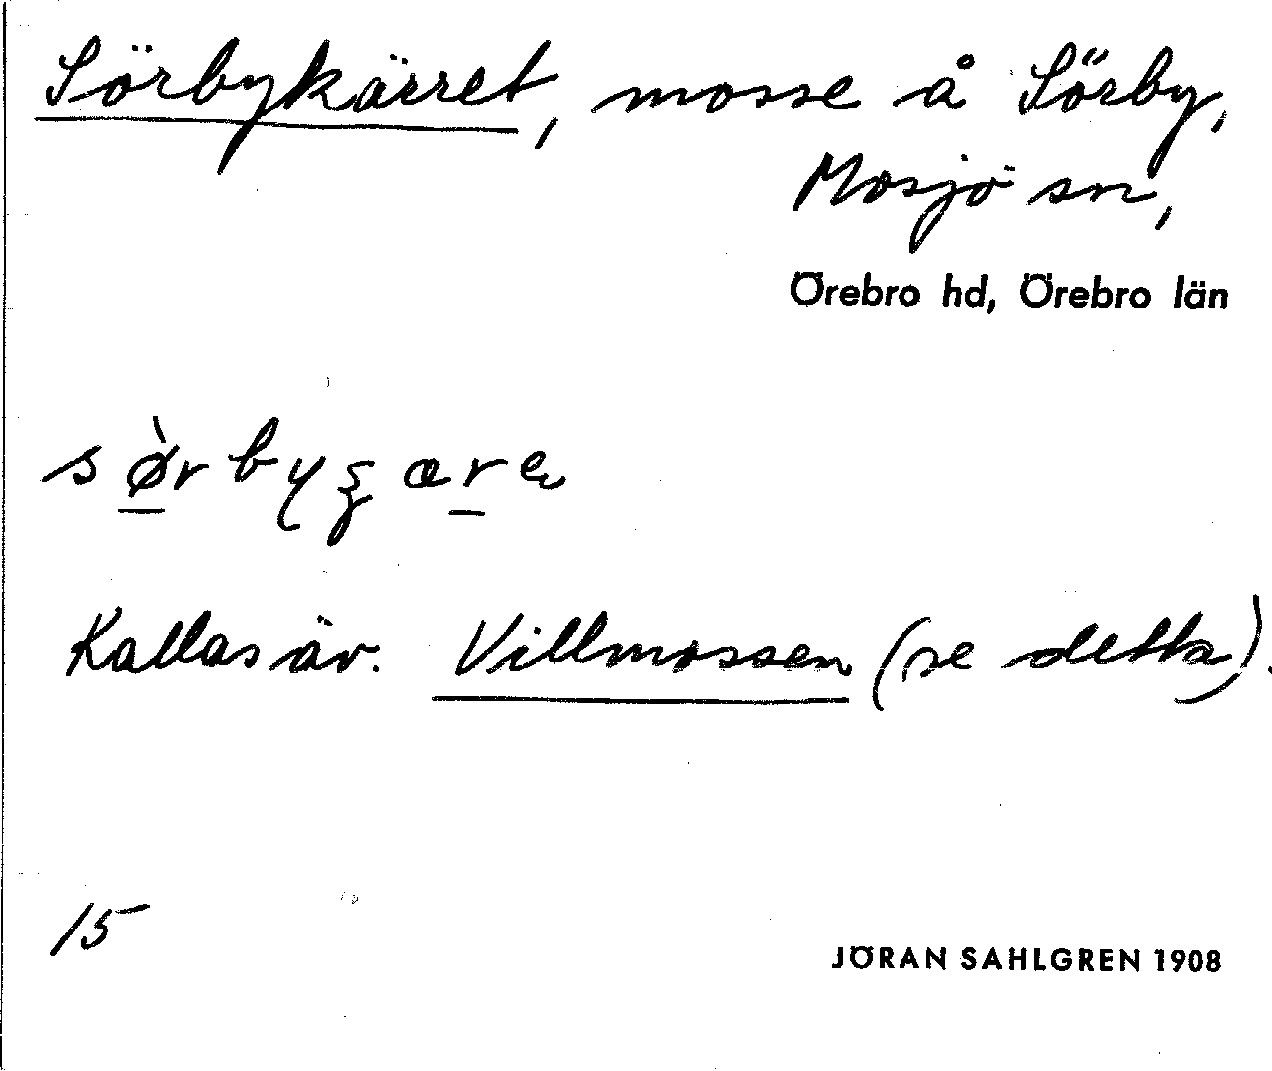 Sörbykärret, mosse å Sörby,
Mosjö sn,
Örebro hd, Örebro län
Kallas äv. Villmossen (se detta).
15
JÖRAN SAHLGREN 1908